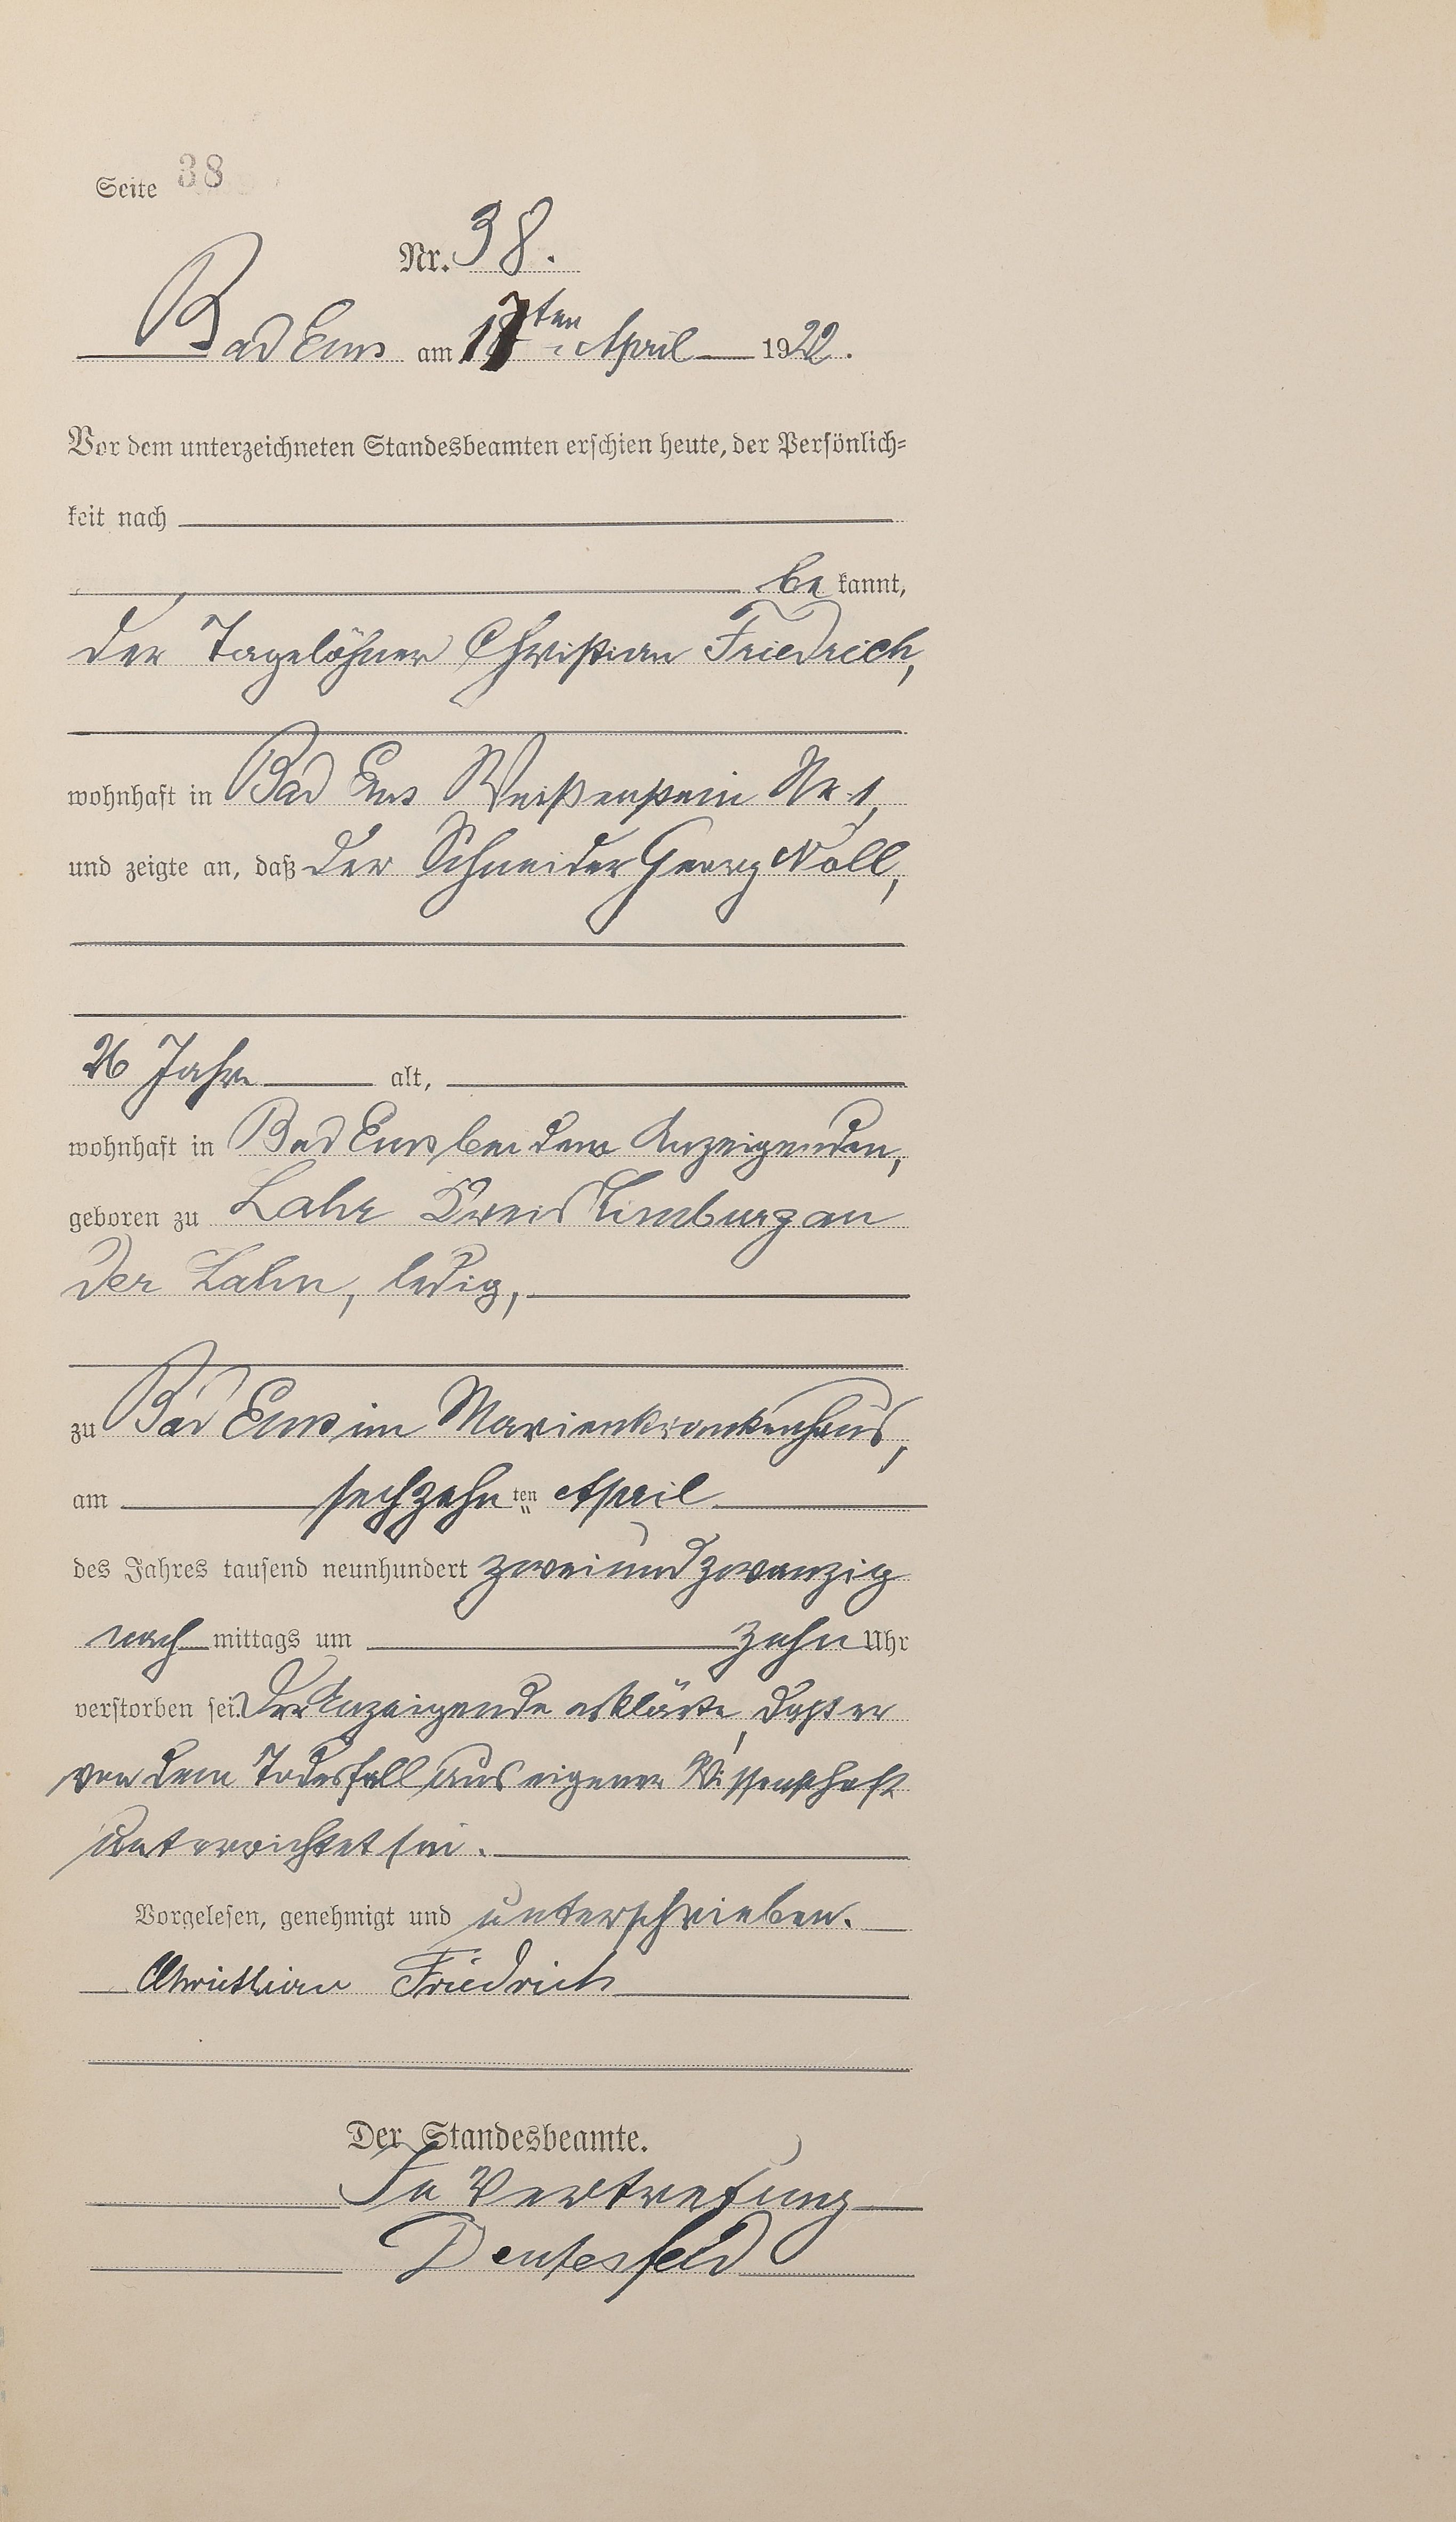 Seite 38
Nr. 38.
Bad Ems am 17ten April 1922.
Vor dem unterzeichneten Standesbeamten erschien heute, der Persönlich-
keit nach
be kannt,
der Tagelöhner Christian Friedrich,
wohnhaft in Bad Ems Weißenstein Nr. 1,
und zeigte an, daß der Schneider Georg Noll,
26 Jahre alt,
wohnhaft in Bad Ems bei dem Anzeigenden,
geboren zu Lahr Kreis Limburg an
der Lahn, ledig,
zu Bad Ems im Marienkrankenhaus,
am sechzehnten April
des Jahres tausend neunhundert zweiundzwanzig
nach mittags um zehn Uhr
verstorben sei. Der Anzeigende erklärte, daß er
von dem Todesfall aus eigener Wissenschaft
unterrichtet sei.
Vorgelesen, genehmigt und unterschrieben.
Christian Friedrich
Der Standesbeamte.
In Vertretung